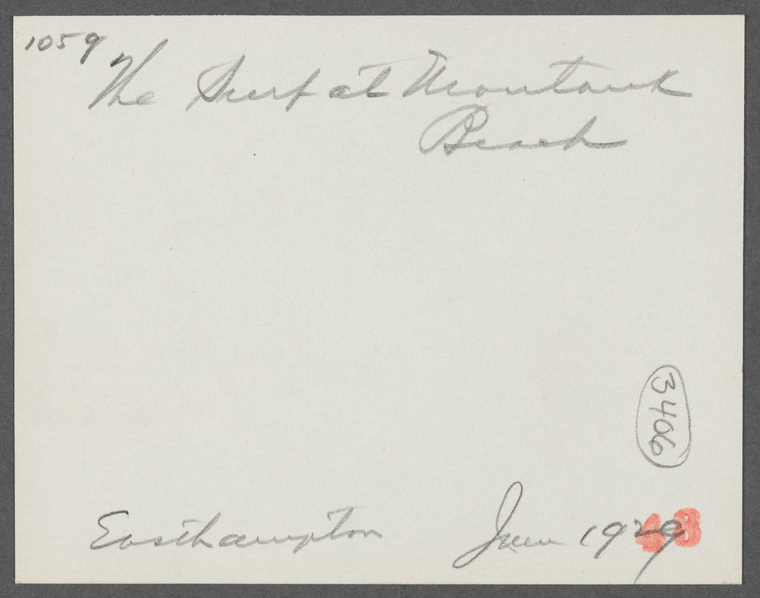 1059
The Surf at Montauk
Beach
3406
Easthampton June 1929
48